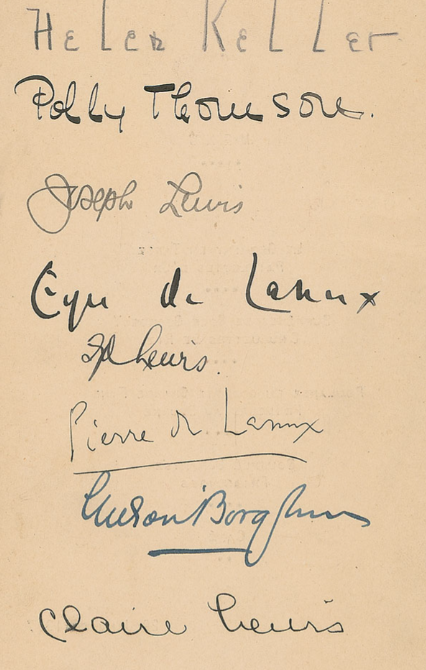 Helen Keller
Polly Thomson.
Joseph Lewis
Eyre de Lanux
Lewis.
Pierre de Lanux
Gutzon Borglum
Claire Lewis